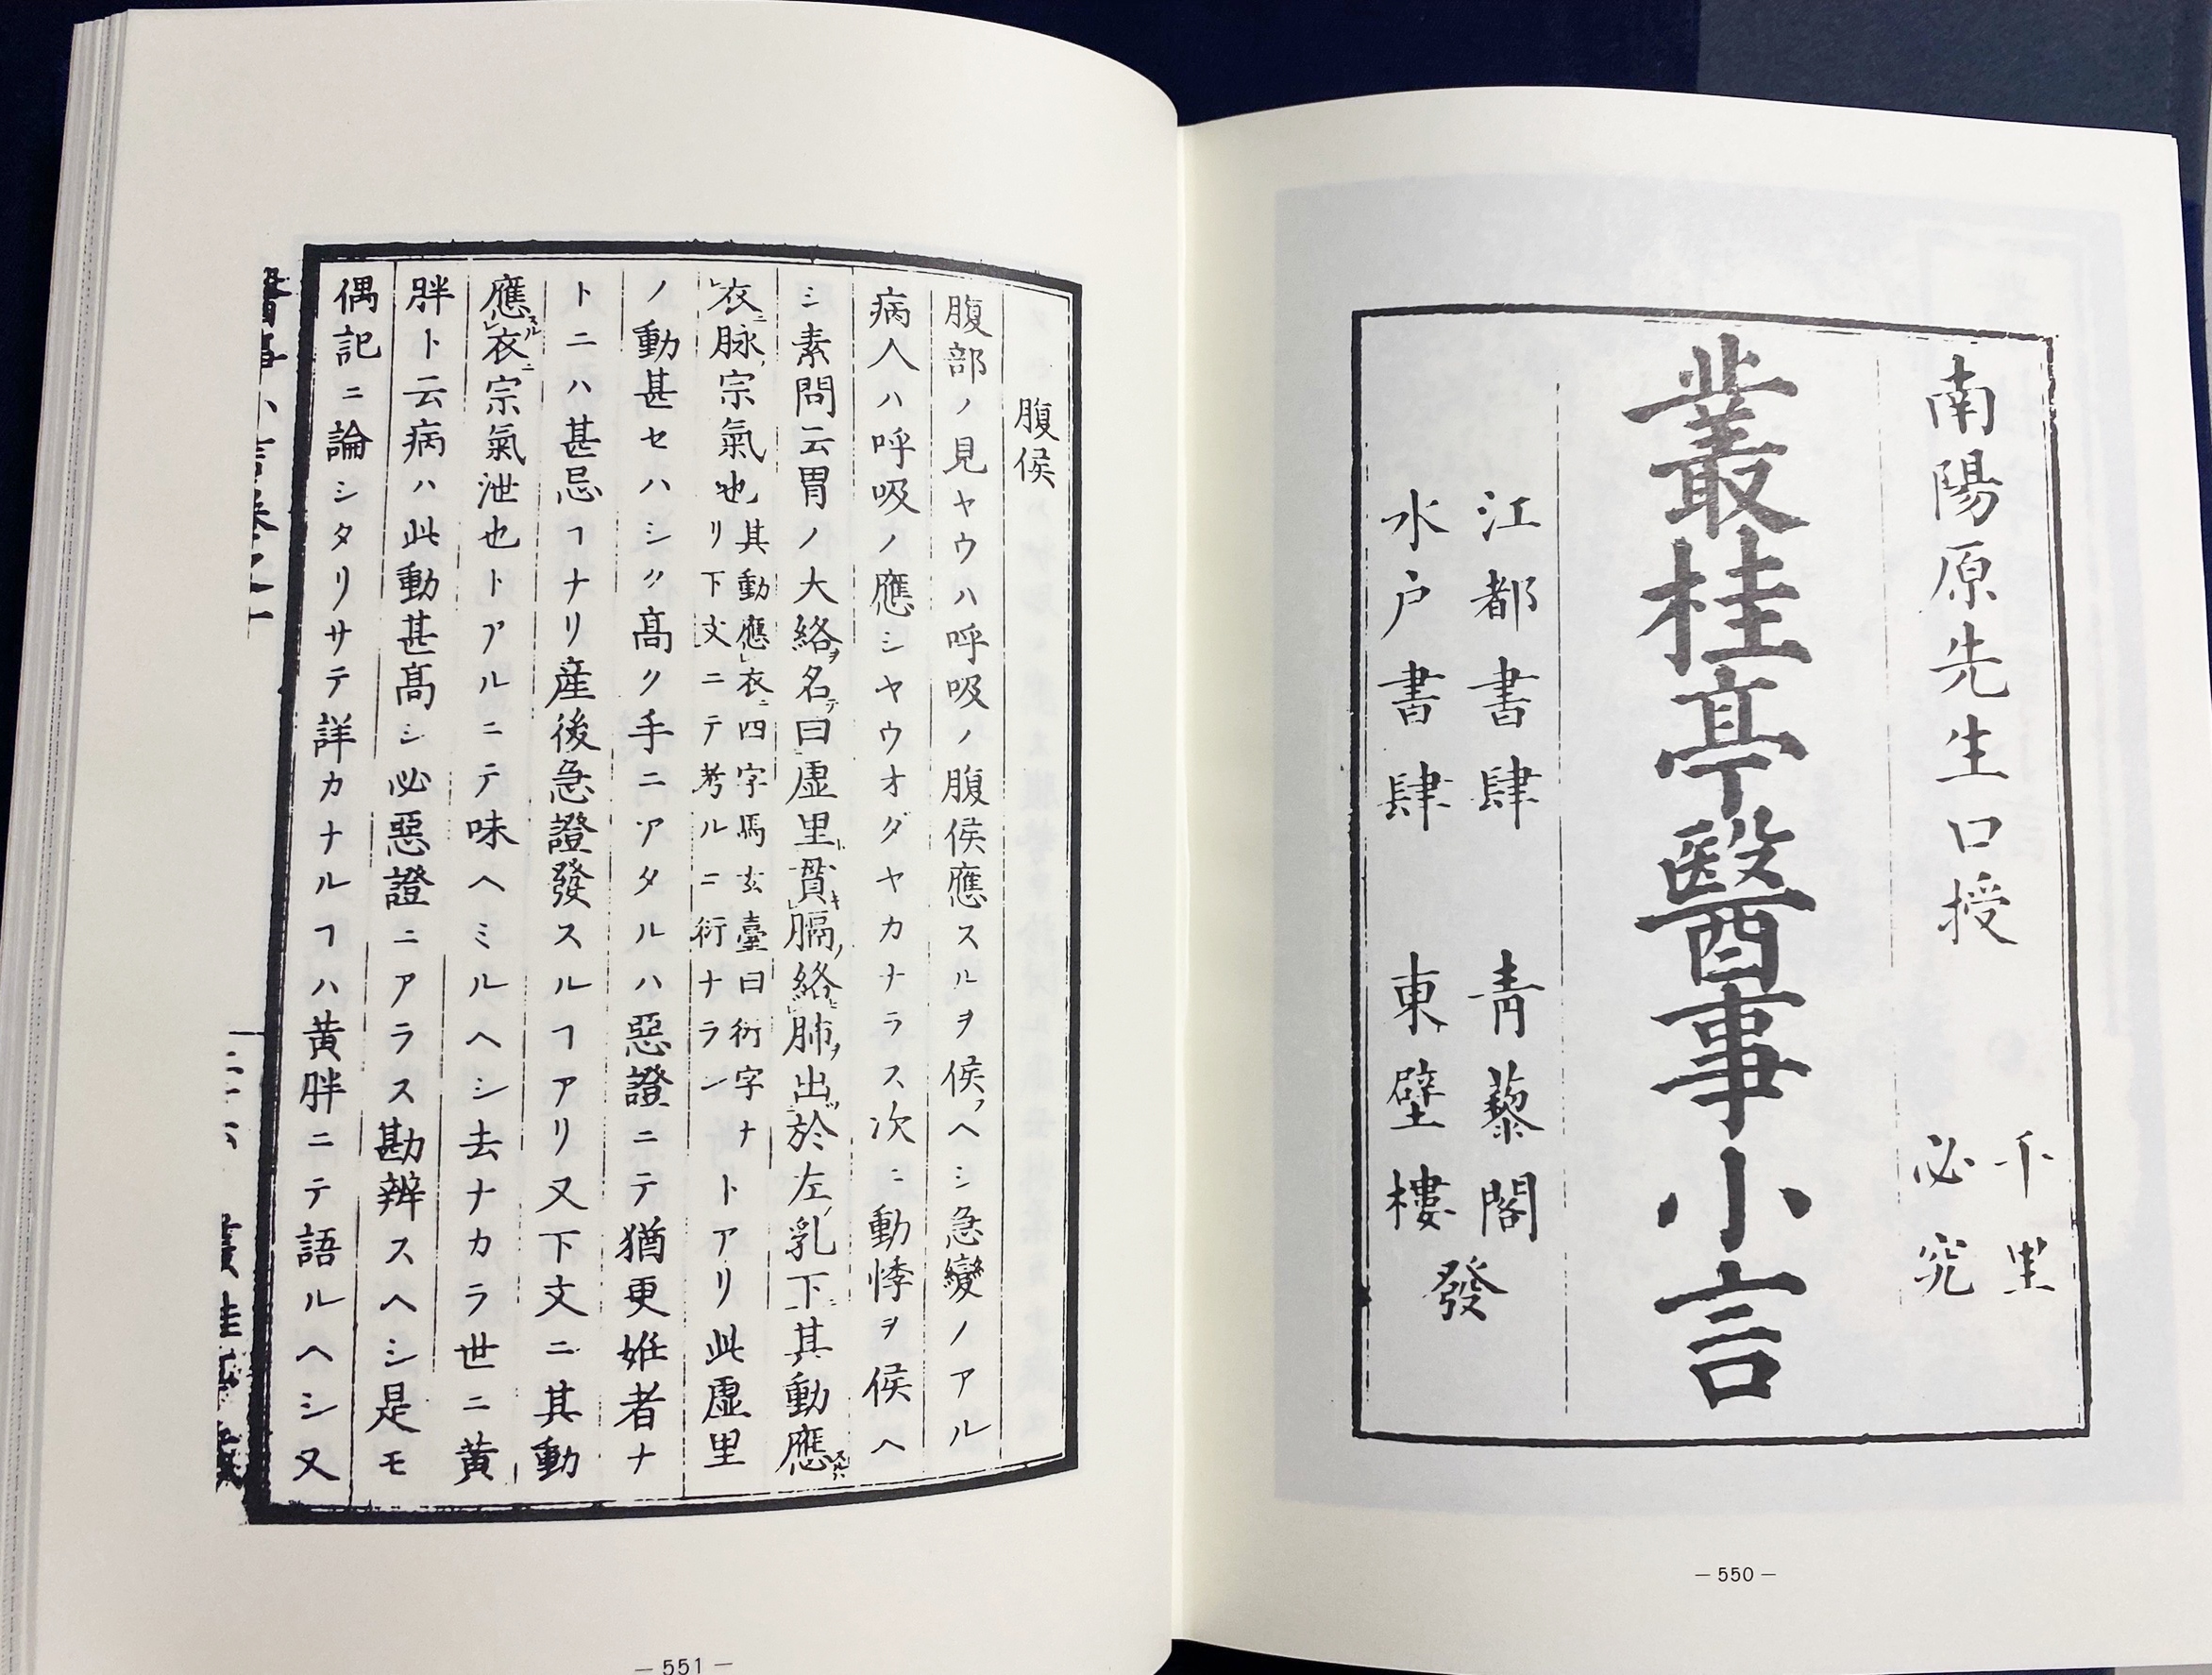 南陽原先生口授
不里
必究
叢桂亭醫事小言
江都書肆　青藜閣
水戸書肆　東壁樓
發
— 550 —
腹候
腹部ノ見ヤウハ呼吸ノ腹候應スルヲ候フヘシ急變ノアル
病人ハ呼吸ノ應シヤウオダヤカナラス次ニ動悸ヲ候ヘ
シ素問云胃ノ大絡ヲ名テ曰虛里ト貫キ膈ヲ絡ヒ肺ヲ出於左乳下其動應
衣ニ脉宗氣也其動應衣ニ四字馬玄臺曰衍字ナ
リ下文ニテ考ルニ衍ナラン
トアリ此虛里
ノ動甚セハシク髙ク手ニアタルハ惡證ニテ猶更姙者ナ
トニハ甚忌ヿナリ産後急證發スルヿアリ又下文ニ其動
應スル衣ニ宗氣泄也トアルニテ味ヘミルヘシ去ナカラ世ニ黄
胖ト云病ハ此動甚髙シ必惡證ニアラス勘辨スヘシ是モ
偶記ニ論シタリサテ詳カナルヿハ黄胖ニテ語ルヘシ又
醫事小言卷之一
二十六
— 551 —